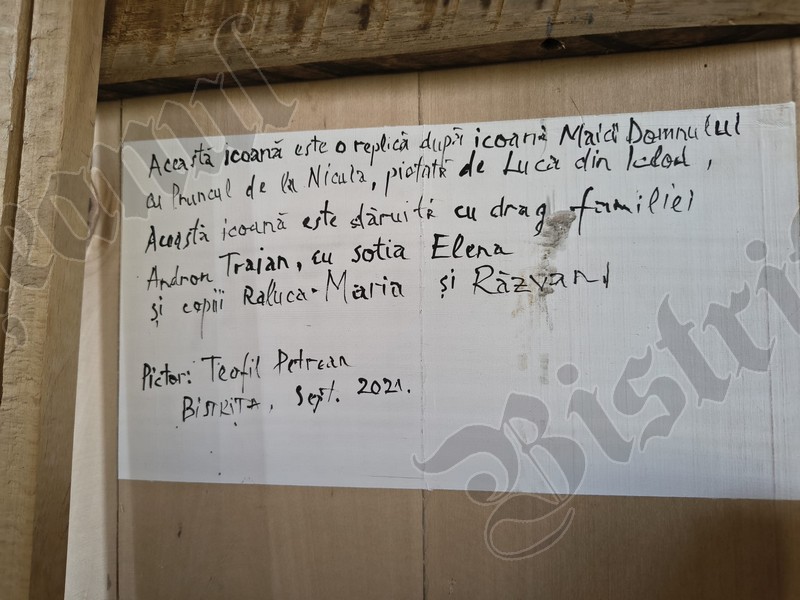 Această icoană este o replică după icoana Maicii Domnului
cu Pruncul de la Nicula, pictată de Luca din Iclod,
Această icoană este dăruită cu drag familiei
Andron Traian, cu soția Elena
și copii Raluca-Maria și Răzvan
Pictor: Teofil Petrean
BISTRIȚA, Sept. 2021.
Bistri